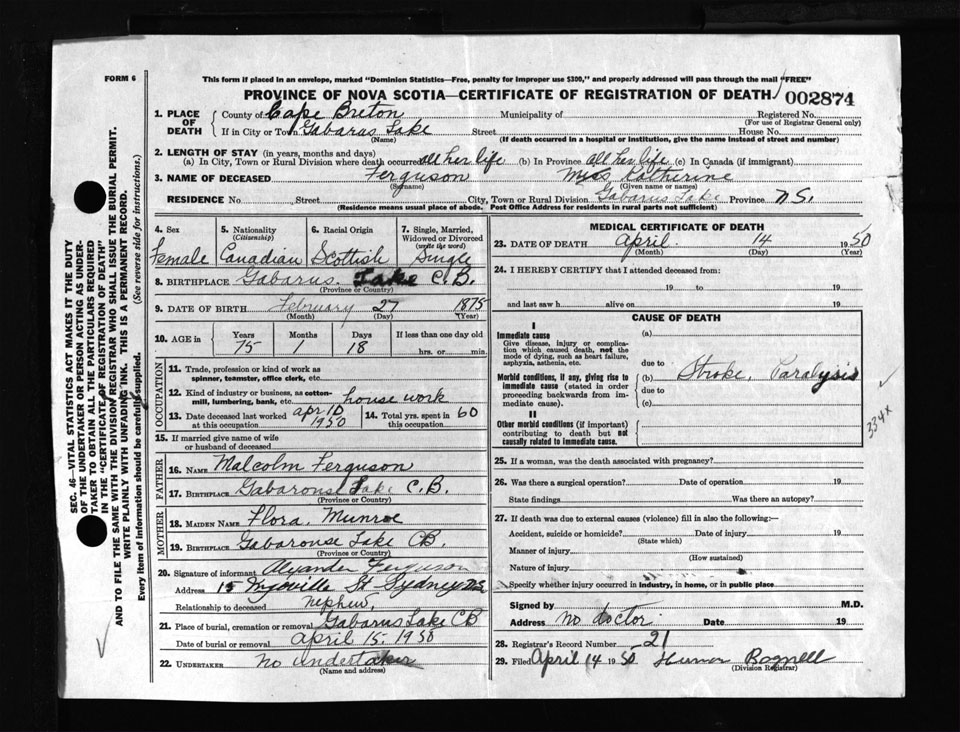 FORM 6
This form if placed in an envelope, marked "Dominion Statistics—Free, penalty for improper use $300," and properly addressed will pass through the mail "FREE"
PROVINCE OF NOVA SCOTIA—CERTIFICATE OF REGISTRATION OF DEATH
002874
1. PLACE OF DEATH
County of Cape Breton Municipality of Registered No.
(For use of Registrar General only)
If in City or Town Gabaras Lake Street House No.
(Name) (If death occurred in a hospital or institution, give the name instead of street and number)
2. LENGTH OF STAY (in years, months and days)
(a) In City, Town or Rural Division where death occurred all her life (b) In Province all her life (c) In Canada (if immigrant)
3. NAME OF DECEASED Ferguson Miss Catherine
(Surname) (Given name or names)
RESIDENCE No. Street City, Town or Rural Division Gabarus Lake Province N.S.
(Residence means usual place of abode. Post Office Address for residents in rural parts not sufficient)
4. Sex
Female
5. Nationality
(Citizenship)
Canadian
6. Racial Origin
Scottish
7. Single, Married, Widowed or Divorced
(write the word)
Single
8. BIRTHPLACE Gabarus Lake C.B.
(Province or Country)
9. DATE OF BIRTH February 27 1875
(Month) (Day) (Year)
10. AGE in Years Months Days If less than one day old
75 1 18 hrs. or min.
OCCUPATION
11. Trade, profession or kind of work as
spinner, teamster, office clerk, etc.
12. Kind of industry or business, as cotton-
mill, lumbering, bank, etc. house work
13. Date deceased last worked at this occupation apr 10 1950
14. Total yrs. spent in this occupation 60
15. If married give name of wife
or husband of deceased
FATHER
16. NAME Malcolm Ferguson
17. BIRTHPLACE Gabarouse Lake C.B.
(Province or Country)
MOTHER
18. MAIDEN NAME Flora Munroe
19. BIRTHPLACE Gabarouse Lake CB.
(Province or Country)
20. Signature of informant Alexander Ferguson
Address St Sydney N.S.
Relationship to deceased nephew.
21. Place of burial, cremation or removal Gabarus Lake CB
Date of burial or removal April 15. 1950
22. UNDERTAKER No undertaker
(Name and address)
MEDICAL CERTIFICATE OF DEATH
23. DATE OF DEATH April 14 1950
(Month) (Day) (Year)
24. I HEREBY CERTIFY that I attended deceased from:
19 to 19
and last saw h alive on 19
CAUSE OF DEATH
I
Immediate cause
Give disease, injury or complica-
tion which caused death, not the
mode of dying, such as heart failure,
asphyxia, asthenia, etc.
(a)
due to
Morbid conditions, if any, giving rise to
immediate cause (stated in order
proceeding backwards from im-
mediate cause).
(b) Stroke, Paralysis
due to
(c)
II
Other morbid conditions (if important)
contributing to death but not
causally related to immediate cause.
334x
25. If a woman, was the death associated with pregnancy?
26. Was there a surgical operation? Date of operation 19
State findings Was there an autopsy?
27. If death was due to external causes (violence) fill in also the following:—
Accident, suicide or homicide? Date of injury 19
(State which)
Manner of injury
(How sustained)
Nature of injury
Specify whether injury occurred in industry, in home, or in public place
Signed by M.D.
Address no doctor Date 19
28. Registrar's Record Number 21
29. Filed April 14 1950 Bagnell
(Division Registrar)
SEC. 46—VITAL STATISTICS ACT MAKES IT THE DUTY
OF THE UNDERTAKER OR PERSON ACTING AS UNDER-
TAKER TO OBTAIN ALL THE PARTICULARS REQUIRED
IN THE "CERTIFICATE OF REGISTRATION OF DEATH"
AND TO FILE THE SAME WITH THE DIVISION REGISTRAR WHO SHALL ISSUE THE BURIAL PERMIT.
WRITE PLAINLY WITH UNFADING INK. THIS IS A PERMANENT RECORD.
Every item of information should be carefully supplied. (See reverse side for instructions.)